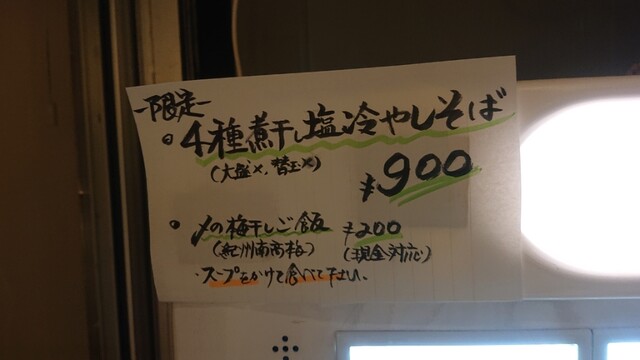 -限定-
• 4種煮干し塩冷やしそば
(大盛×、替玉×)
¥900
• 〆の梅干しご飯 ¥200
(紀州南高梅) (現金対応)
・スープをかけて食べて下さい。